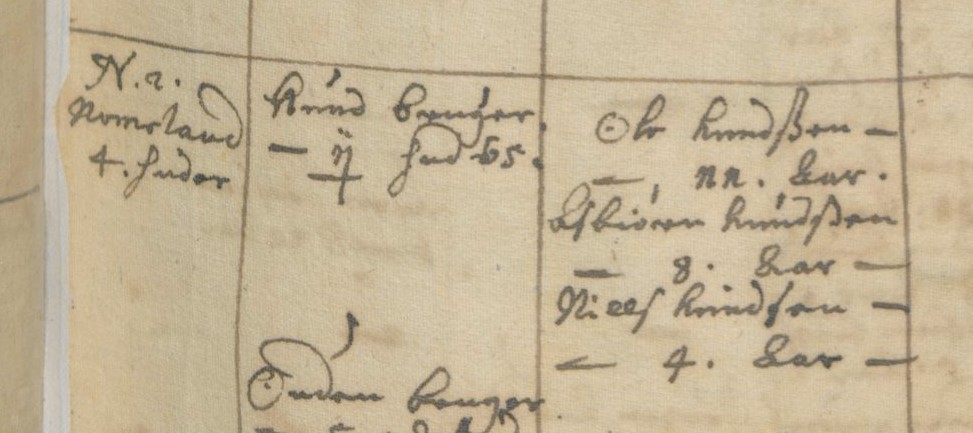 N. 2.
Nomeland
4. huder
Knud bruger
— ÿ hud bs.
Ole Knudßen —
— 11. Aar.
Asbiörn Knudßen
— 8. Aar —
Niels Knudsen —
— 4. Aar —
Enden bruger